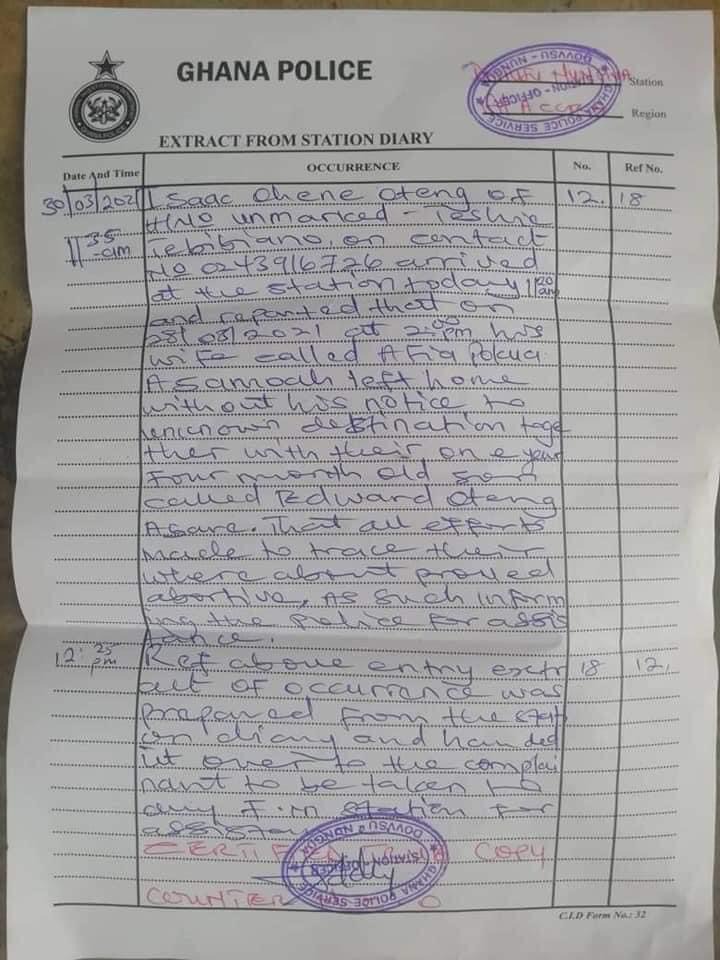 GHANA POLICE
DOVVSU NUNGUA Station
ACCRA Region
GHANA POLICE SERVICE
STATION OFFICER
DOVVSU - NUNGUA
EXTRACT FROM STATION DIARY
Date And Time OCCURRENCE No. Ref No.
30/03/2021 Isaac Ohene Oteng of 12. 18
H/NO unmarked - Teshie
11:35 -am Tebibiano, on contact
No 0243916726 arrived
at the station today 11:20 am
and reported that on
28/03/2021 at 2:00 pm his
wife called Afia Pokua
Asamoah left home
without his notice to
unknown destination toge
ther with their one year
four month old son
called Edward Oteng
Asare. That all efforts
made to trace their
where about proved
abortive, As such inform
ing the police for assis
tance.
12:25 pm Ref above entry extr 18 12.
act of occurrence was
prepared from the stat
ion diary and handed
it over to the complai
nant to be taken to
any F.M station for
CERTIFIED TRUE COPY
GHANA POLICE SERVICE
STATION OFFICER
DOVVSU - NUNGUA
COUNTER
C.I.D Form No.: 32